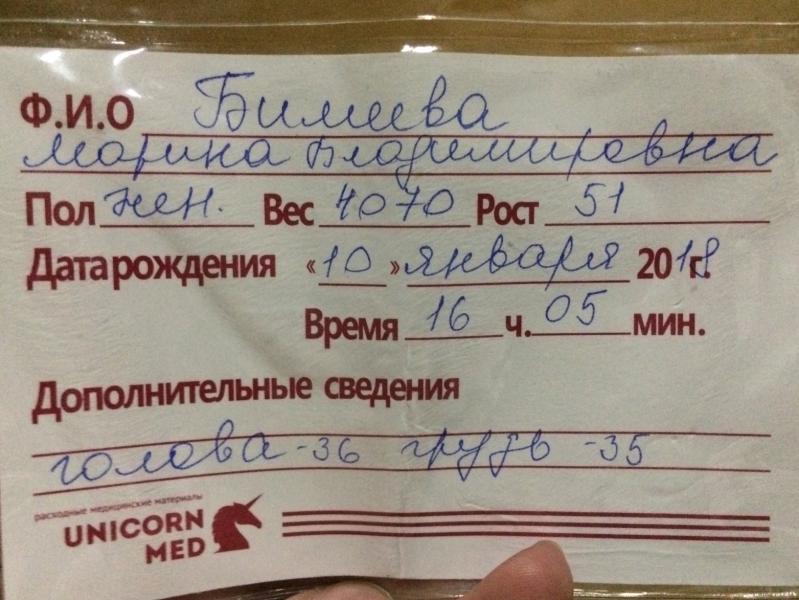 Ф.И.О Билиева
Марина Владимировна
Пол жен. Вес 4070 Рост 51
Дата рождения «10» января 2018 г.
Время 16 ч. 05 мин.
Дополнительные сведения
голова-36 грудь -35
расходные медицинские материалы
UNICORN
MED